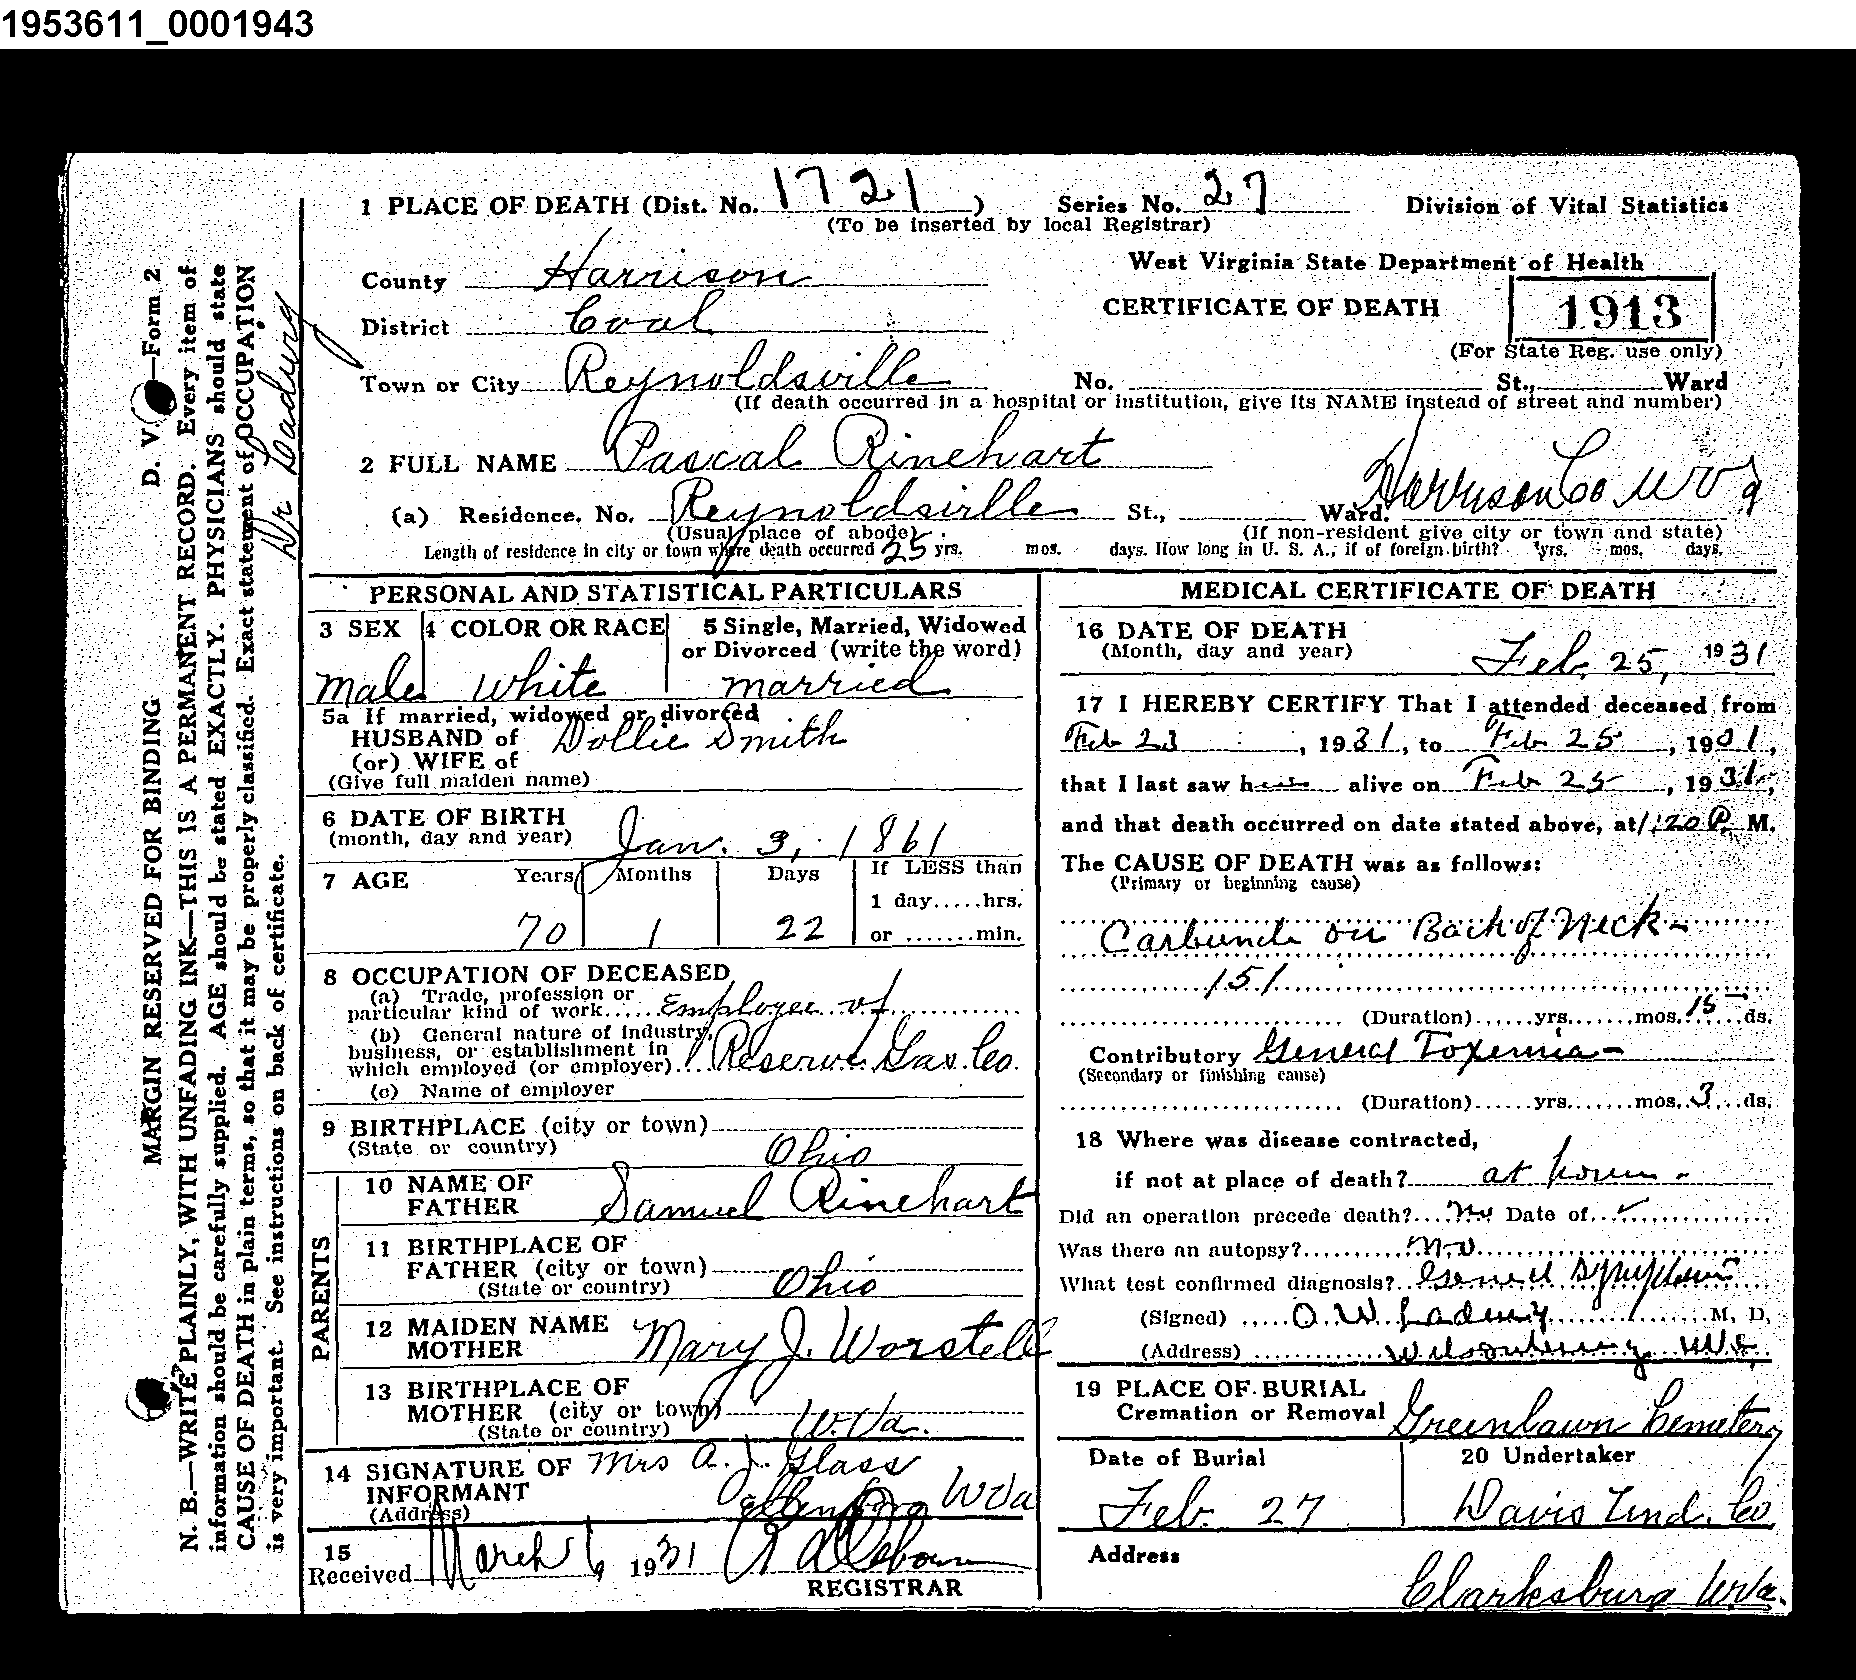 1953611_0001943
1 PLACE OF DEATH (Dist. No. 1721 ) Series No. 27 Division of Vital Statistics
(To be inserted by local Registrar)
West Virginia State Department of Health
County Harrison
CERTIFICATE OF DEATH 1913
District Coal
(For State Reg. use only)
Town or City Reynoldsville No. St., Ward
(If death occurred in a hospital or institution, give its NAME instead of street and number)
2 FULL NAME Pascal Rinehart
(a) Residence. No. Reynoldsville St., Ward. Harrison Co W Va
(Usual place of abode) (If non-resident give city or town and state)
Length of residence in city or town where death occurred 25 yrs. mos. days. How long in U. S. A., if of foreign birth? yrs. mos. days.
PERSONAL AND STATISTICAL PARTICULARS
3 SEX 4 COLOR OR RACE 5 Single, Married, Widowed
or Divorced (write the word)
Male White married
5a If married, widowed or divorced
HUSBAND of Dollie Smith
(or) WIFE of
(Give full maiden name)
6 DATE OF BIRTH
(month, day and year) Jan. 3, 1861
7 AGE Years Months Days If LESS than
1 day.....hrs.
70 1 22 or .......min.
8 OCCUPATION OF DECEASED
(a) Trade, profession or
particular kind of work Employee of
(b) General nature of industry,
business, or establishment in
which employed (or employer) Reserve Gas Co.
(c) Name of employer
9 BIRTHPLACE (city or town)
(State or country) Ohio
PARENTS
10 NAME OF
FATHER Samuel Rinehart
11 BIRTHPLACE OF
FATHER (city or town)
(State or country) Ohio
12 MAIDEN NAME
MOTHER Mary J. Worstell
13 BIRTHPLACE OF
MOTHER (city or town)
(State or country) W.Va.
14 SIGNATURE OF Mrs A. J. Glass
INFORMANT
(Address) W Va
15
Received March 6 1931 Osborn
REGISTRAR
MEDICAL CERTIFICATE OF DEATH
16 DATE OF DEATH
(Month, day and year) Feb. 25, 1931
17 I HEREBY CERTIFY That I attended deceased from
Feb 23 , 1931, to Feb 25 , 1931,
that I last saw him alive on Feb 25 , 1931,
and that death occurred on date stated above, at 1:20 P. M.
The CAUSE OF DEATH was as follows:
(Primary or beginning cause)
Carbuncle on Back of Neck -
151
(Duration)......yrs.......mos. 15 ds.
Contributory General Toxemia -
(Secondary or finishing cause)
(Duration)......yrs.......mos. 3 ds.
18 Where was disease contracted,
if not at place of death? at home -
Did an operation precede death? No Date of ✓
Was there an autopsy? No
What test confirmed diagnosis? General Symptoms
(Signed) O. W. Ladwig M. D.
(Address) Wilsonburg W Va.
19 PLACE OF BURIAL
Cremation or Removal Greenlawn Cemetery
Date of Burial 20 Undertaker
Feb. 27 Davis Und. Co
Address
Clarksburg W.Va.
MARGIN RESERVED FOR BINDING D. V. —Form 2
N. B.—WRITE PLAINLY, WITH UNFADING INK—THIS IS A PERMANENT RECORD. Every item of
information should be carefully supplied. AGE should be stated EXACTLY. PHYSICIANS should state
CAUSE OF DEATH in plain terms, so that it may be properly classified. Exact statement of OCCUPATION
is very important. See instructions on back of certificate.
Dr Ladwig